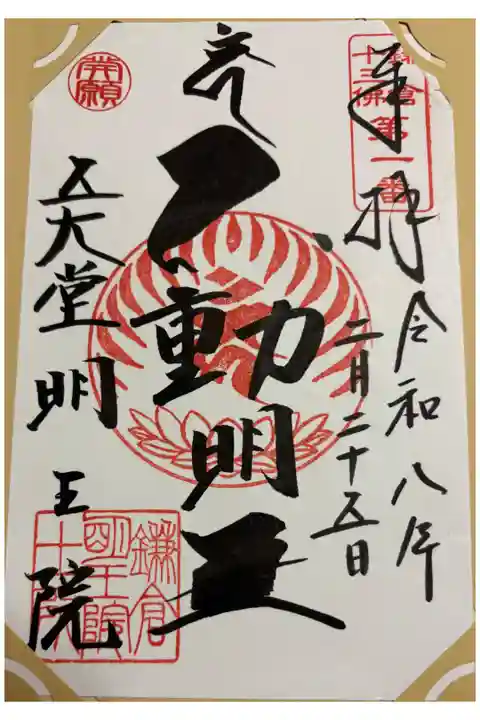 鎌倉
十三佛
第一番
奉拝
令和八年
二月二十五日
不動明王
開願
五大堂明王院
鎌倉
明王院